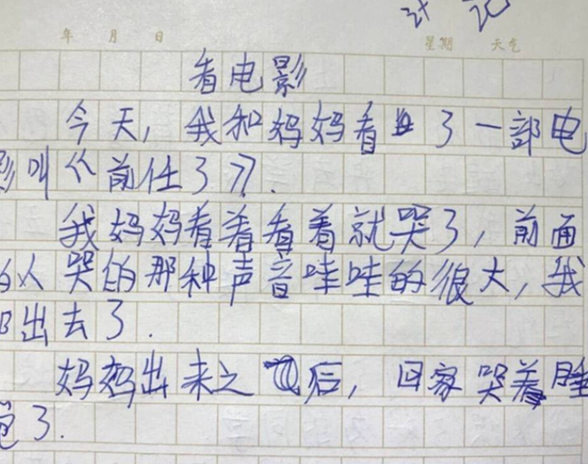 年 月 日
星期 天气
看电影
今天，我和妈妈看了一部电
影叫《前任3》.
我妈妈看着看着就哭了，前面
的人哭的那种声音哇哇的很大，我
出去了.
妈妈出来之后，回家哭着睡
觉了.